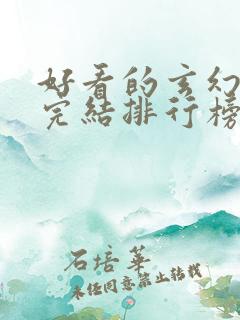 好看的玄幻
完结排行榜
石培华
未经同意禁止转载